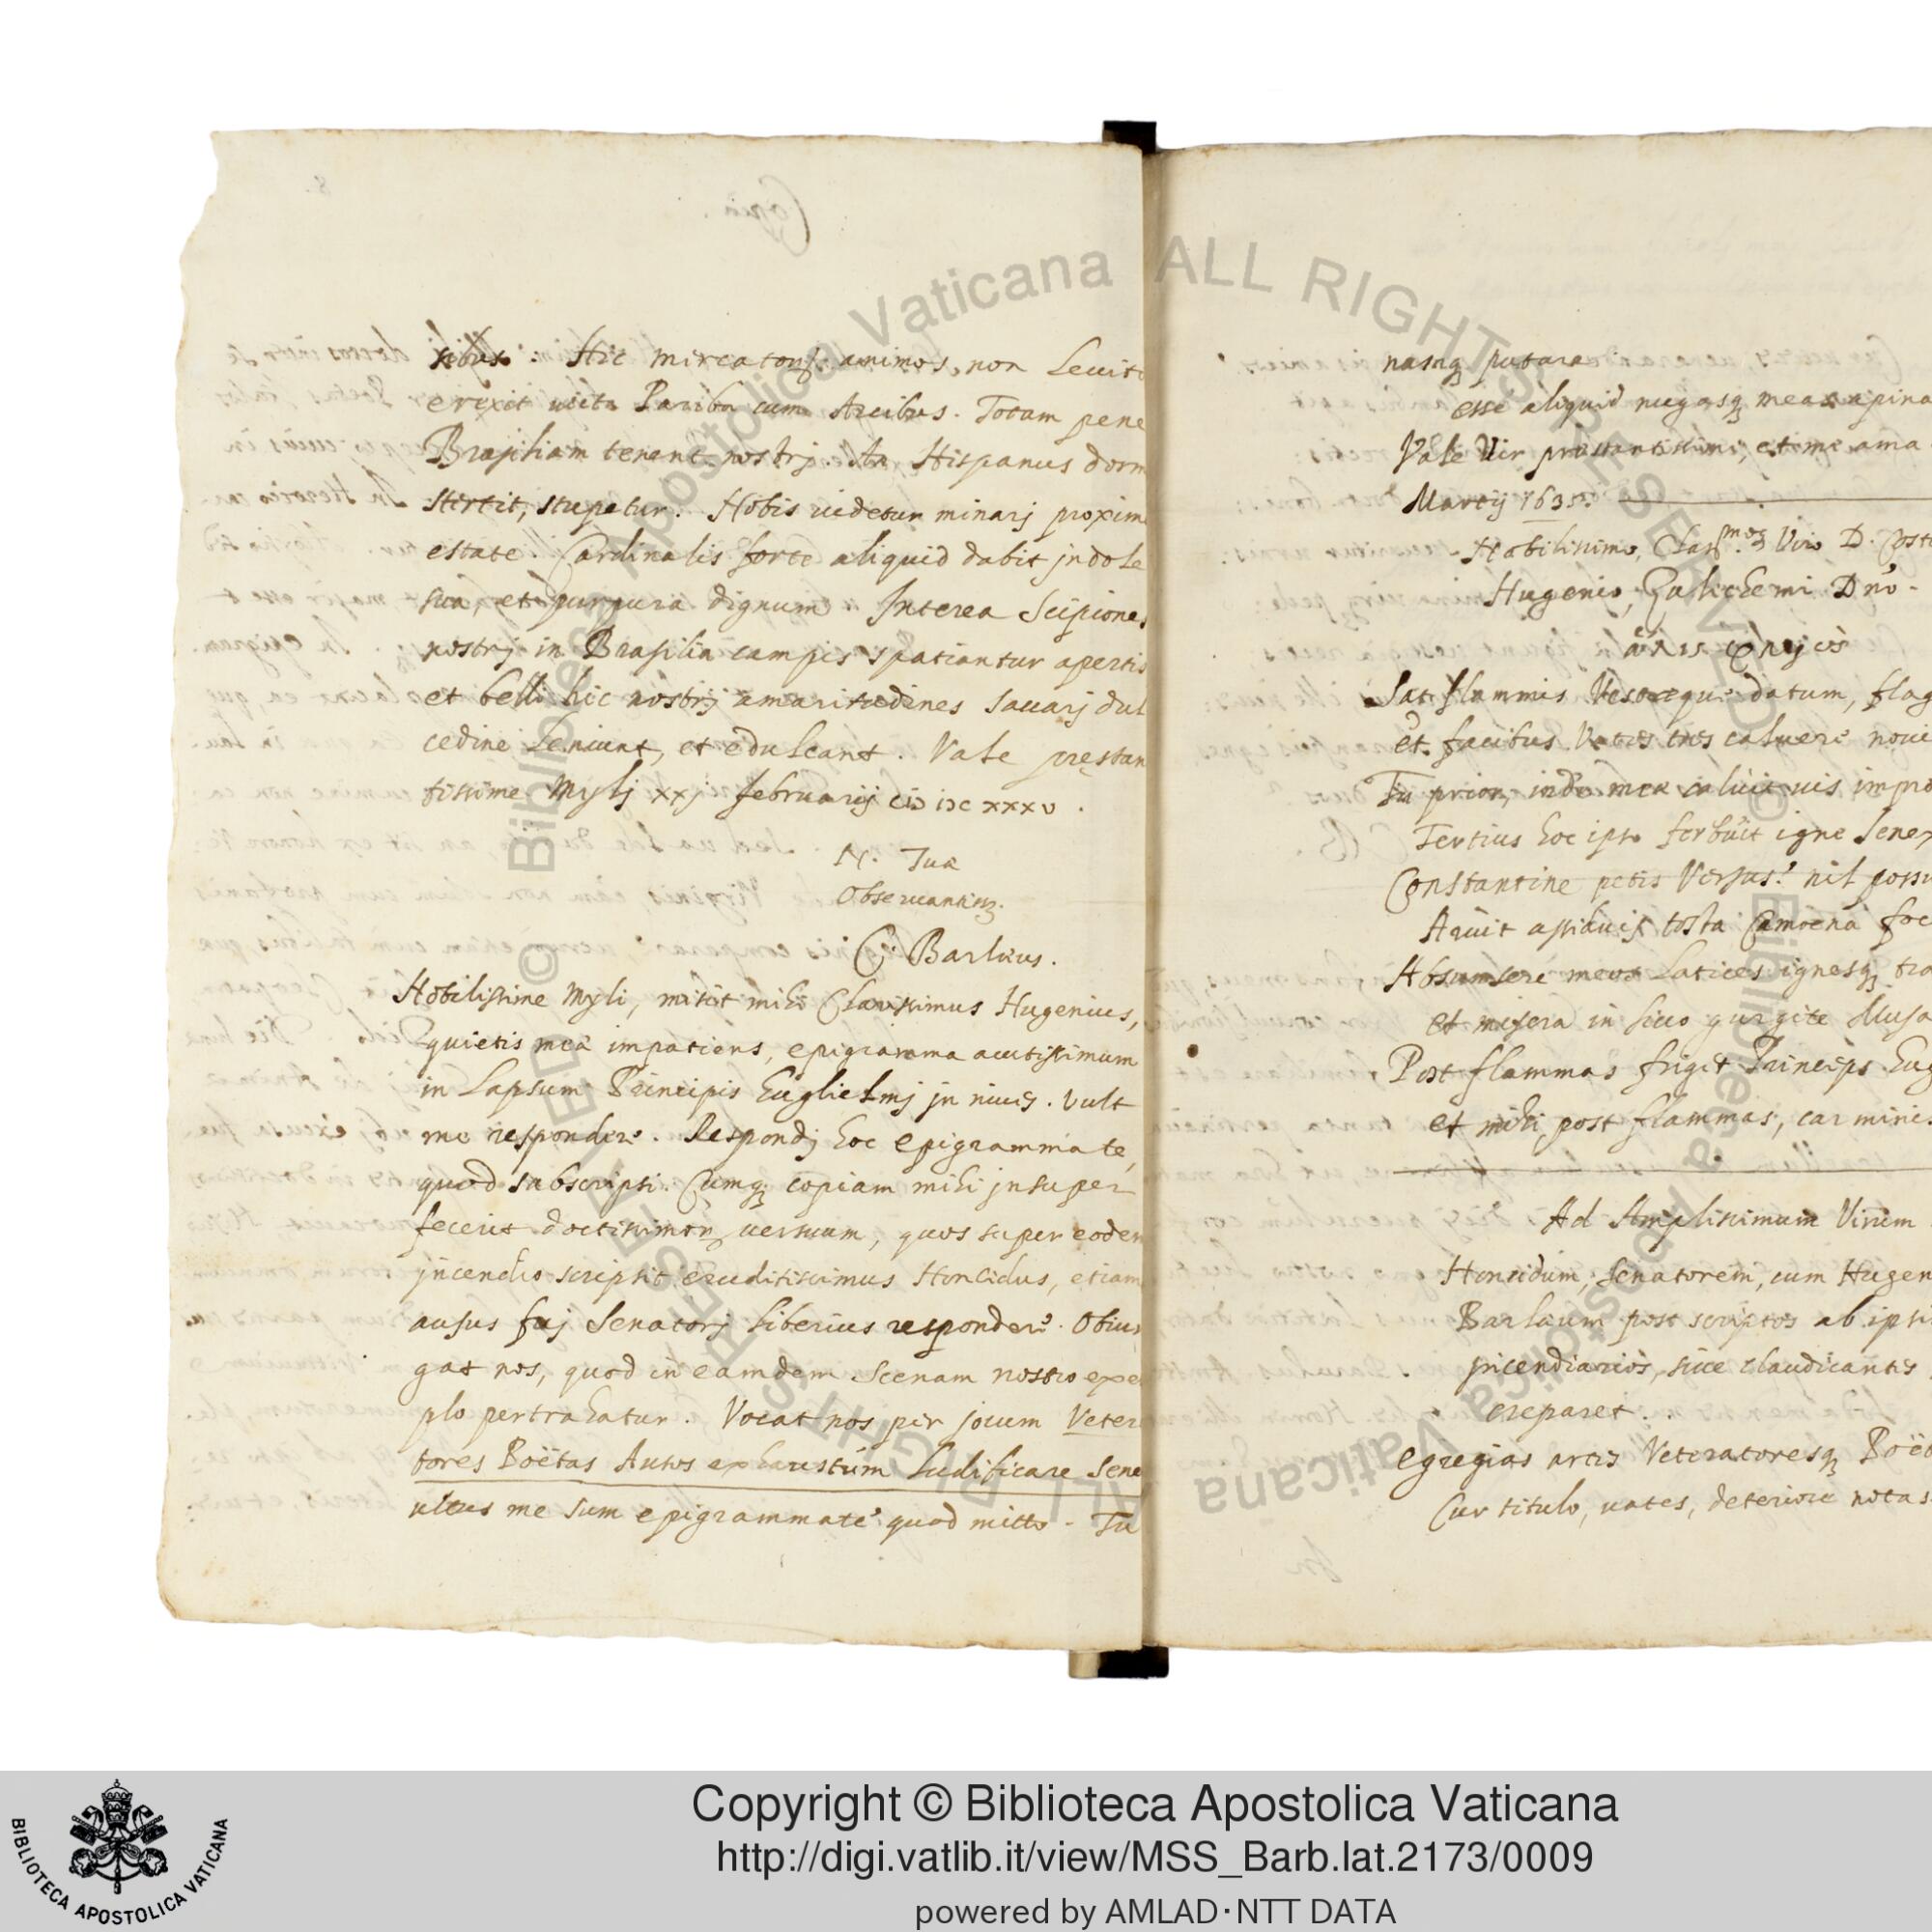 Hic mercatorum animos, non leuiter
erexit uicta Pariba cum Arcibus. Totam pene
Brasiliam tenent nostrj. An Hispanus dorm
stertit, stupetur. Nobis uidetur minarj proxim
estate. Cardinalis forte aliquid dabit jndole
sua, et purpura dignum. Interea Scipiones
nostrj in Brasilia campis spatiantur apertis
et belli hic nostrj amaritudines sacarj dul
cedine leniunt, et edulcant. Vale prestan
tissime Mylj xxj februarij
N. Tuæ
Obseruantiss.
C. Barlæus.
Nobilissime Myli, misit mihi Clarissimus Hugenius,
quietis meæ impatiens, epigramma acutissimum
in Lapsum Principis Guglielmj jn niues. Vult
me respondere. Respondj hoc epigrammate,
quod subscripsi. Cumq; copiam mihi jnsuper
fecerit doctissimorum uersuum, quos super eodem
jncendio scripsit eruditissimus Honcidus, etiam
ausus fuj Senatorj liberius respondere. Obiur
gat nos, quod in eamdem scenam nostro exe
plo pertrahatur. Vocat nos per jocum Vetera
tores Poëtas Ausos exhaustum ludificare Sene
ultus me sum epigrammate quod mitto. Tu
nasq; putare
esse aliquid nugasq; meas apina
Vale Vir præstantissime, et me ama
Martij 1635.
Nobilissimo, Clarissimoq; Viro D. Costa
Hugenio, Zulichemi Dño.
Sat flammis Vesteque datum, flag
et facibus Vates tres caluere noui
Tu prior, inde meæ caluit uis impro
Tertius hoc ipso ferbuit igne Senex
Constantine petis Versus? nil possu
Aruit assiduis tosta Camoena foc
Absumsere meos Latices ignesq; tra
et misera in sicco gurgite Musa
Post flammas friget Princeps Gug
et mihi post flammas, carminis
Ad Amplissimum Virum
Honcidum, Senatorem, cum Hugen
Barlæum post scriptos ab ipsi
jncendiarios, siue claudicantes
creparet.
Egregias artis Veteratoresq; Poët
Cur titulo, uates, deteriore notas
Copyright © Biblioteca Apostolica Vaticana
http://digi.vatlib.it/view/MSS_Barb.lat.2173/0009
powered by AMLAD·NTT DATA
BIBLIOTECA APOSTOLICA VATICANA
© Biblioteca Apostolica Vaticana ALL RIGHTS RESERVED